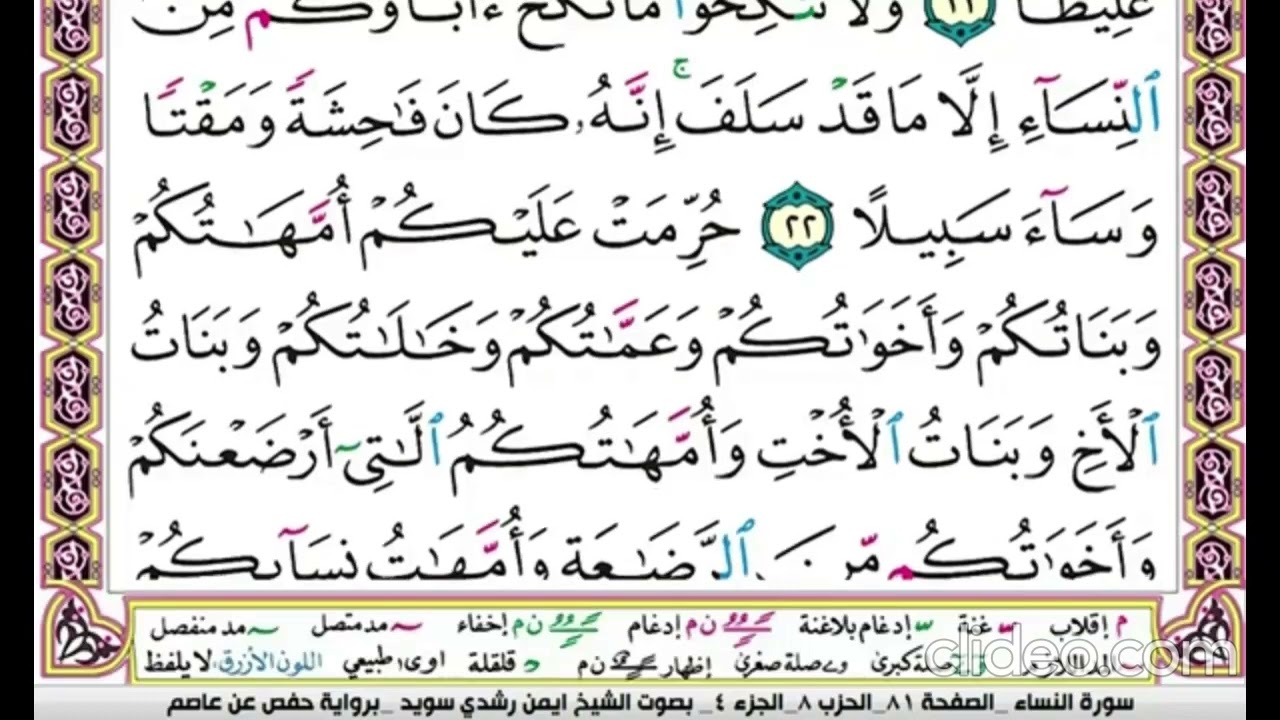 غَلِيظًا ٢١ وَلَا تَنكِحُوا۟ مَا نَكَحَ ءَابَآؤُكُم مِّنَ
ٱلنِّسَآءِ إِلَّا مَا قَدْ سَلَفَ ۚ إِنَّهُۥ كَانَ فَـٰحِشَةً وَمَقْتًا
وَسَآءَ سَبِيلًا ٢٢ حُرِّمَتْ عَلَيْكُمْ أُمَّهَـٰتُكُمْ
وَبَنَاتُكُمْ وَأَخَوَٰتُكُمْ وَعَمَّـٰتُكُمْ وَخَـٰلَـٰتُكُمْ وَبَنَاتُ
ٱلْأَخِ وَبَنَاتُ ٱلْأُخْتِ وَأُمَّهَـٰتُكُمُ ٱلَّـٰتِىٓ أَرْضَعْنَكُمْ
وَأَخَوَٰتُكُم مِّنَ ٱلرَّضَـٰعَةِ وَأُمَّهَـٰتُ نِسَآئِكُمْ
م إقلاب غنة إدغام بلاغنة ن م إدغام ن م إخفاء مد متصل مد منفصل
صلة كبرى و ے صلة صغرى إظهار ن م د قلقلة اوى طبيعي اللون الأزرق لا يلفظ
clideo.com
سورة النساء _الصفحة ٨١_الحزب ٨_الجزء ٤_ بصوت الشيخ ايمن رشدي سويد _برواية حفص عن عاصم